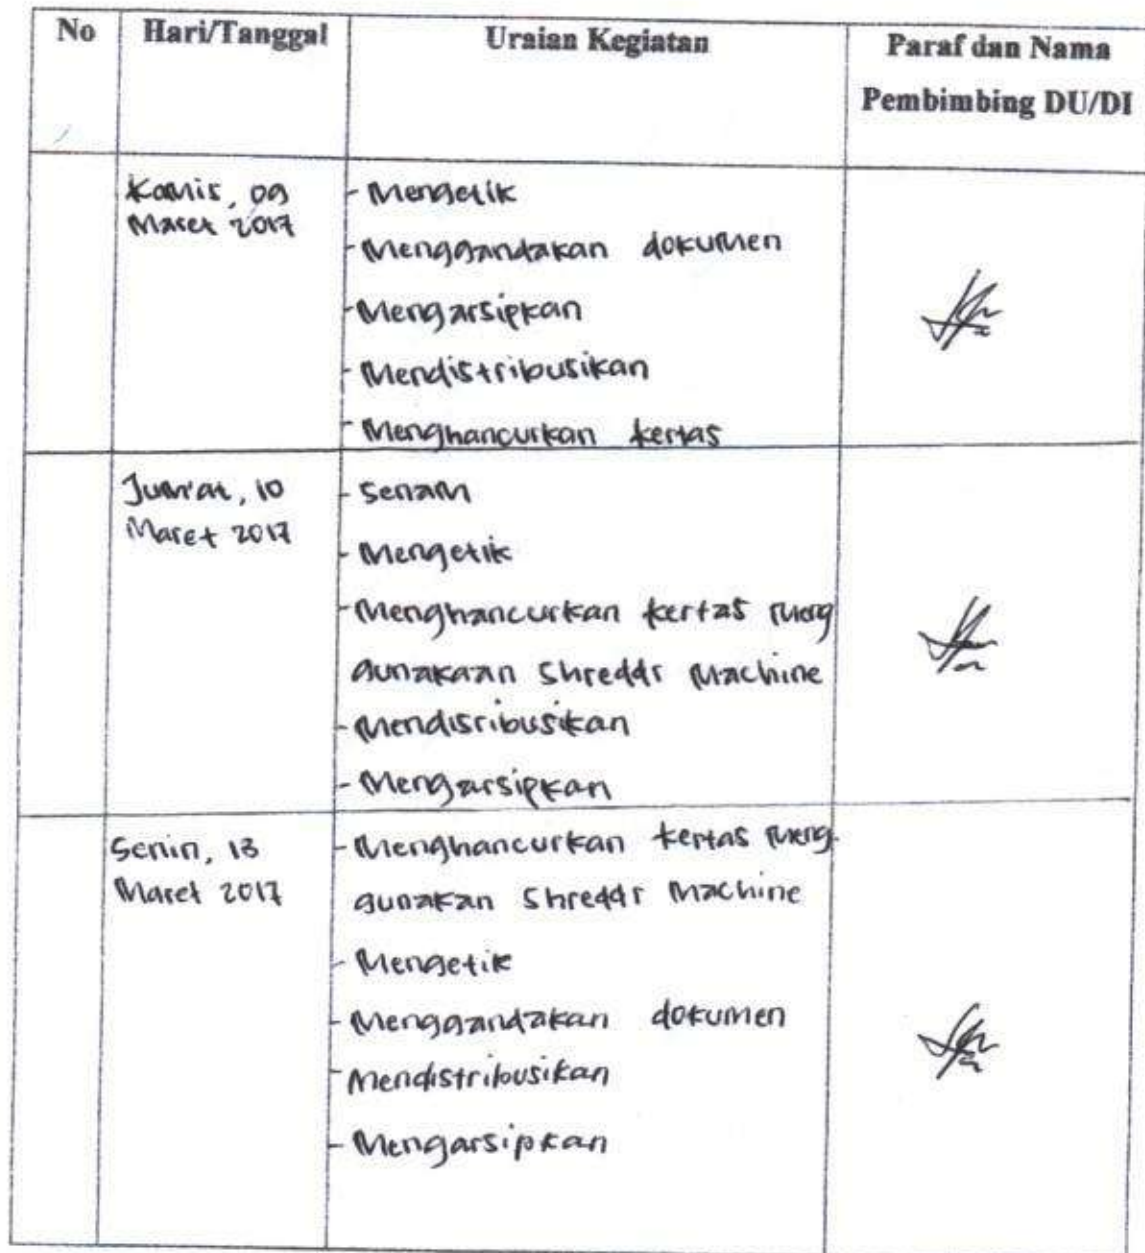 No Hari/Tanggal Uraian Kegiatan Paraf dan Nama
Pembimbing DU/DI
Kamis, 09
Maret 2017
- Mengetik
- Menggandakan dokumen
- Mengarsipkan
- Mendistribusikan
- Menghancurkan kertas
Jum'at, 10
Maret 2017
- Senam
- Mengetik
- Menghancurkan kertas meng
gunakaan Shreddr Machine
- Mendisribusikan
- Mengarsipkan
Senin, 13
Maret 2017
- Menghancurkan kertas meng-
gunakan Shreddr Machine
- Mengetik
- Menggandakan dokumen
- Mendistribusikan
- Mengarsipkan